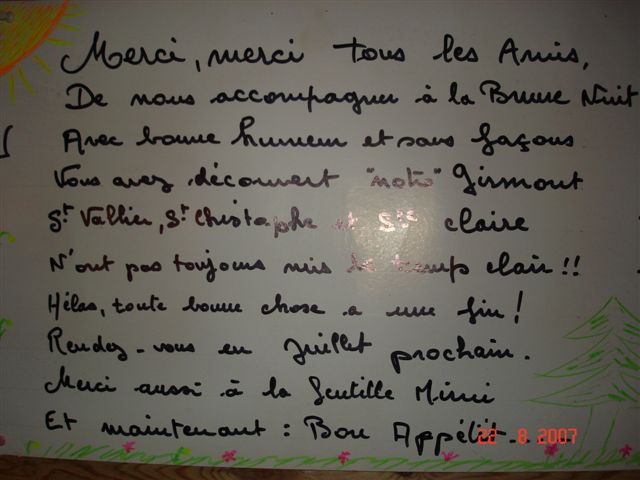 Merci, merci tous les Amis,
De nous accompagner à la Brune Nuit
Avec bonne humeur et sans façons
Vous avez découvert "notre" Girmont
St Vallier, St Christophe et Ste claire
N'ont pas toujours mis le temps clair !!
Hélas, toute bonne chose a une fin !
Rendez-vous en Juillet prochain.
Merci aussi à la Gentille Mimi
Et maintenant : Bon Appétit
22 8 2007